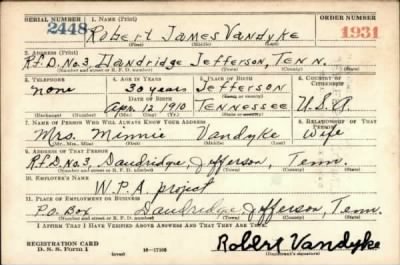 SERIAL NUMBER 1. NAME (Print) ORDER NUMBER
2448 Robert James Vandyke 1931
(First) (Middle) (Last)
2. ADDRESS (Print)
R.F.D. No. 3, Dandridge Jefferson, Tenn.
(Number and street or R. F. D. number) (Town) (County) (State)
3. TELEPHONE 4. AGE IN YEARS 5. PLACE OF BIRTH 6. COUNTRY OF CITIZENSHIP
none 30 years Jefferson
(Town or county)
DATE OF BIRTH
Apr. 12 1910 Tennessee U.S.A.
(Exchange) (Number) (Mo.) (Day) (Yr.) (State or country)
7. NAME OF PERSON WHO WILL ALWAYS KNOW YOUR ADDRESS 8. RELATIONSHIP OF THAT PERSON
Mrs. Minnie Vandyke Wife
(Mr., Mrs., Miss) (First) (Middle) (Last)
9. ADDRESS OF THAT PERSON
R.F.D. No. 3, Dandridge, Jefferson, Tenn.
(Number and street or R. F. D. number) (Town) (County) (State)
10. EMPLOYER'S NAME
W.P.A. project
11. PLACE OF EMPLOYMENT OR BUSINESS
P.O. Box Dandridge Jefferson, Tenn.
(Number and street or R. F. D. number) (Town) (County) (State)
I AFFIRM THAT I HAVE VERIFIED ABOVE ANSWERS AND THAT THEY ARE TRUE.
REGISTRATION CARD
D. S. S. Form 1 (over) 16-17105
Robert Vandyke
(Registrant's signature)